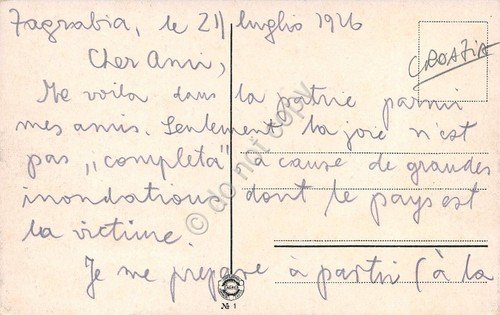 Zagrabia, le 21 luglio 1926
CROAZIA
Cher Ami,
Me voila dans la patrie parmi
mes amis. Seulement la joie n'est
pas „completa" à cause de grandes
inondations dont le pays est
la victime.
Je me prepare à partir (à la
© do not copy
№ 1